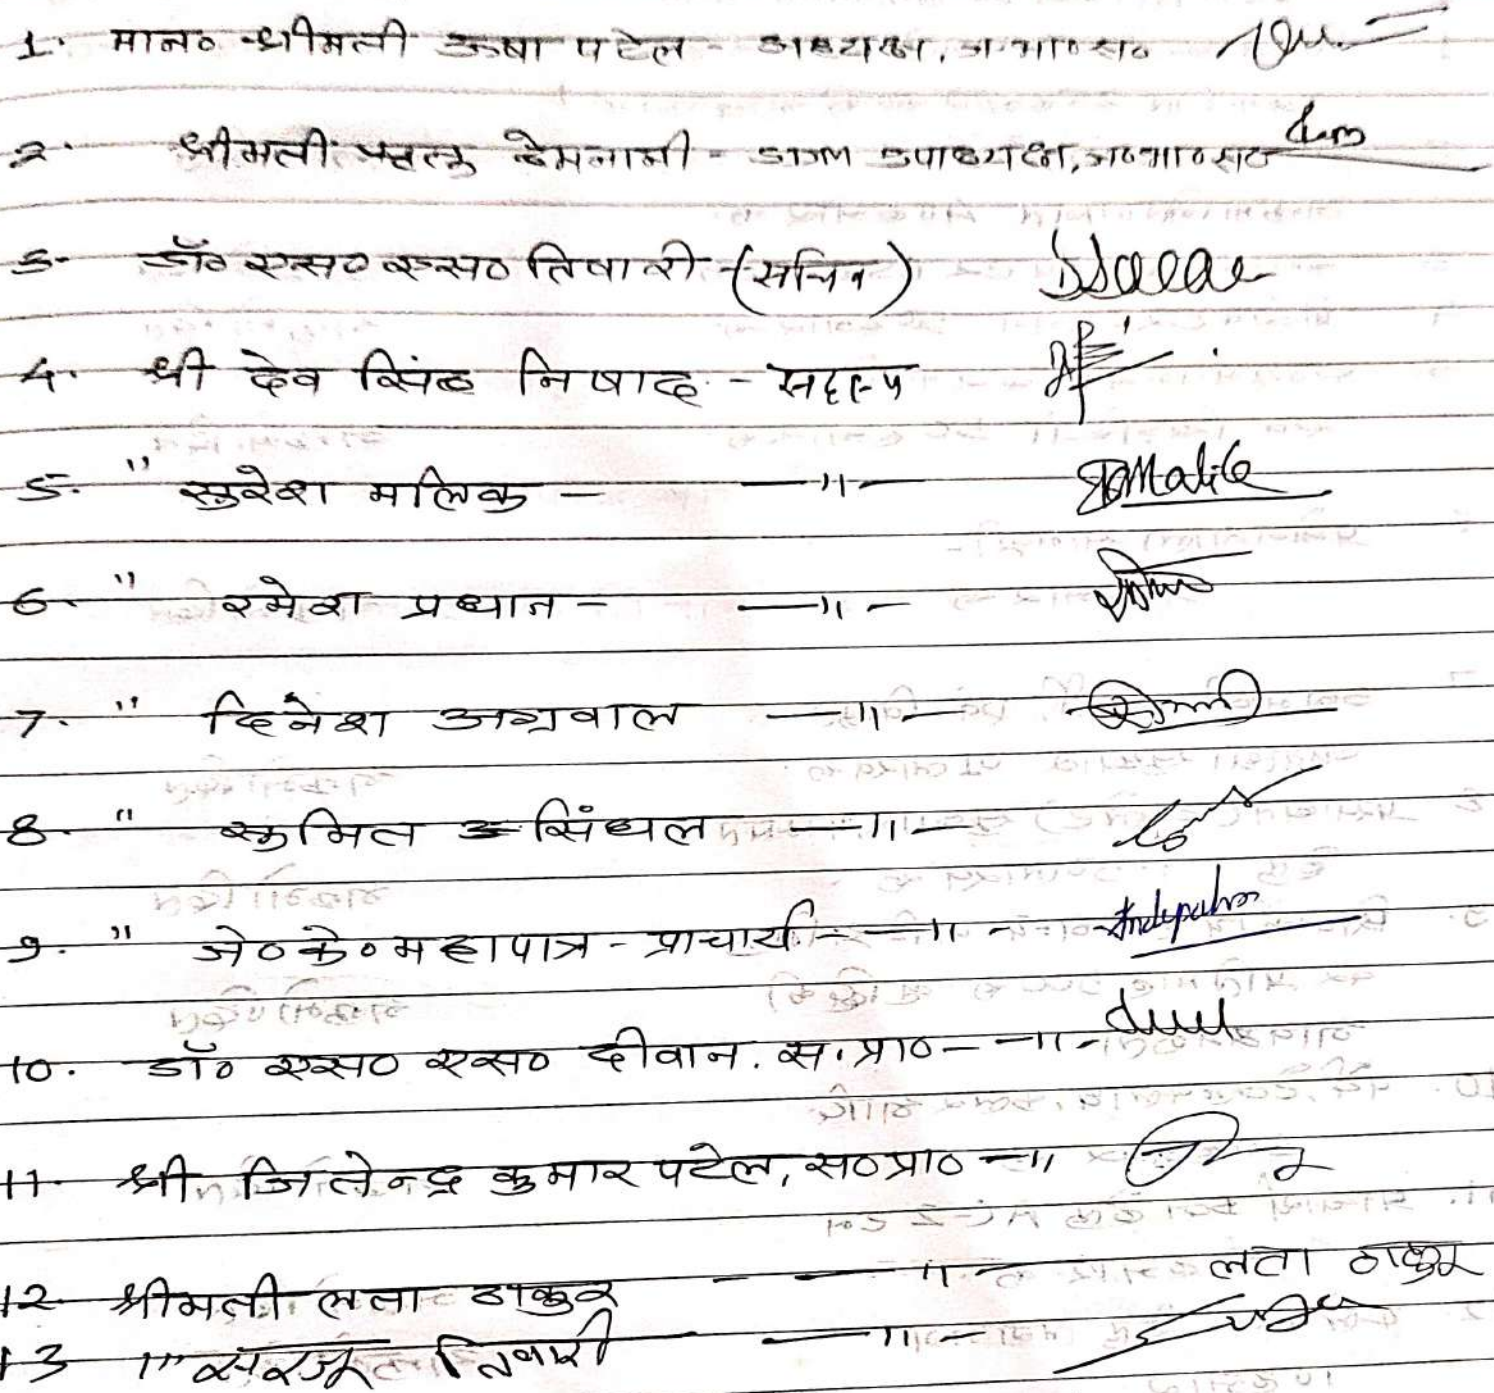 1. मान० श्रीमती ऊषा पटेल - अध्यक्ष, ज.भा०स०
2. श्रीमती - उपाध्यक्ष, ज०भा०स०
3- डॉ० एस० एस० तिवारी - (सचिव)
4. श्री देव सिंह निषाद - सदस्य
5. " सुरेश मलिक - —"— Malik
6. " रमेश प्रधान - —"-
7. " दिनेश अग्रवाल —"—
8. " सुमित सिंघल —"—
9. " जे०के० महापात्र - प्राचार्य - —"-
10. डॉ० एस० एस० दीवान. स.प्रा० - —"-
11. श्री जितेन्द्र कुमार पटेल, स०प्रा० —"
12 श्रीमती लता ठाकुर - —"- लता ठाकुर
13 " सरजू तिवारी —"—